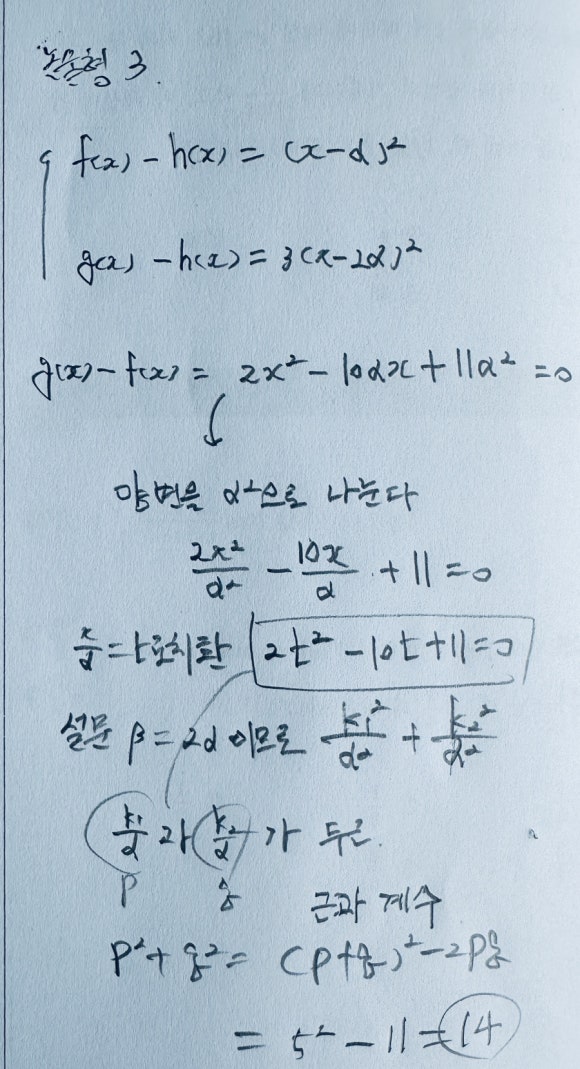 논술형 3.
f(x) - h(x) = (x-α)²
g(x) - h(x) = 3(x-2α)²
g(x) - f(x) = 2x² - 10αx + 11α² = 0
양변을 α²으로 나눈다
2x²/α² - 10x/α + 11 = 0
x/α = t로 치환 2t² - 10t + 11 = 0
설문 β = 2α 이므로 k₁²/α² + k₂²/α²
k₁/α 과 k₂/α 가 두 근.
p q 근과 계수
p² + q² = (p+q)² - 2pq
= 5² - 11 = 14